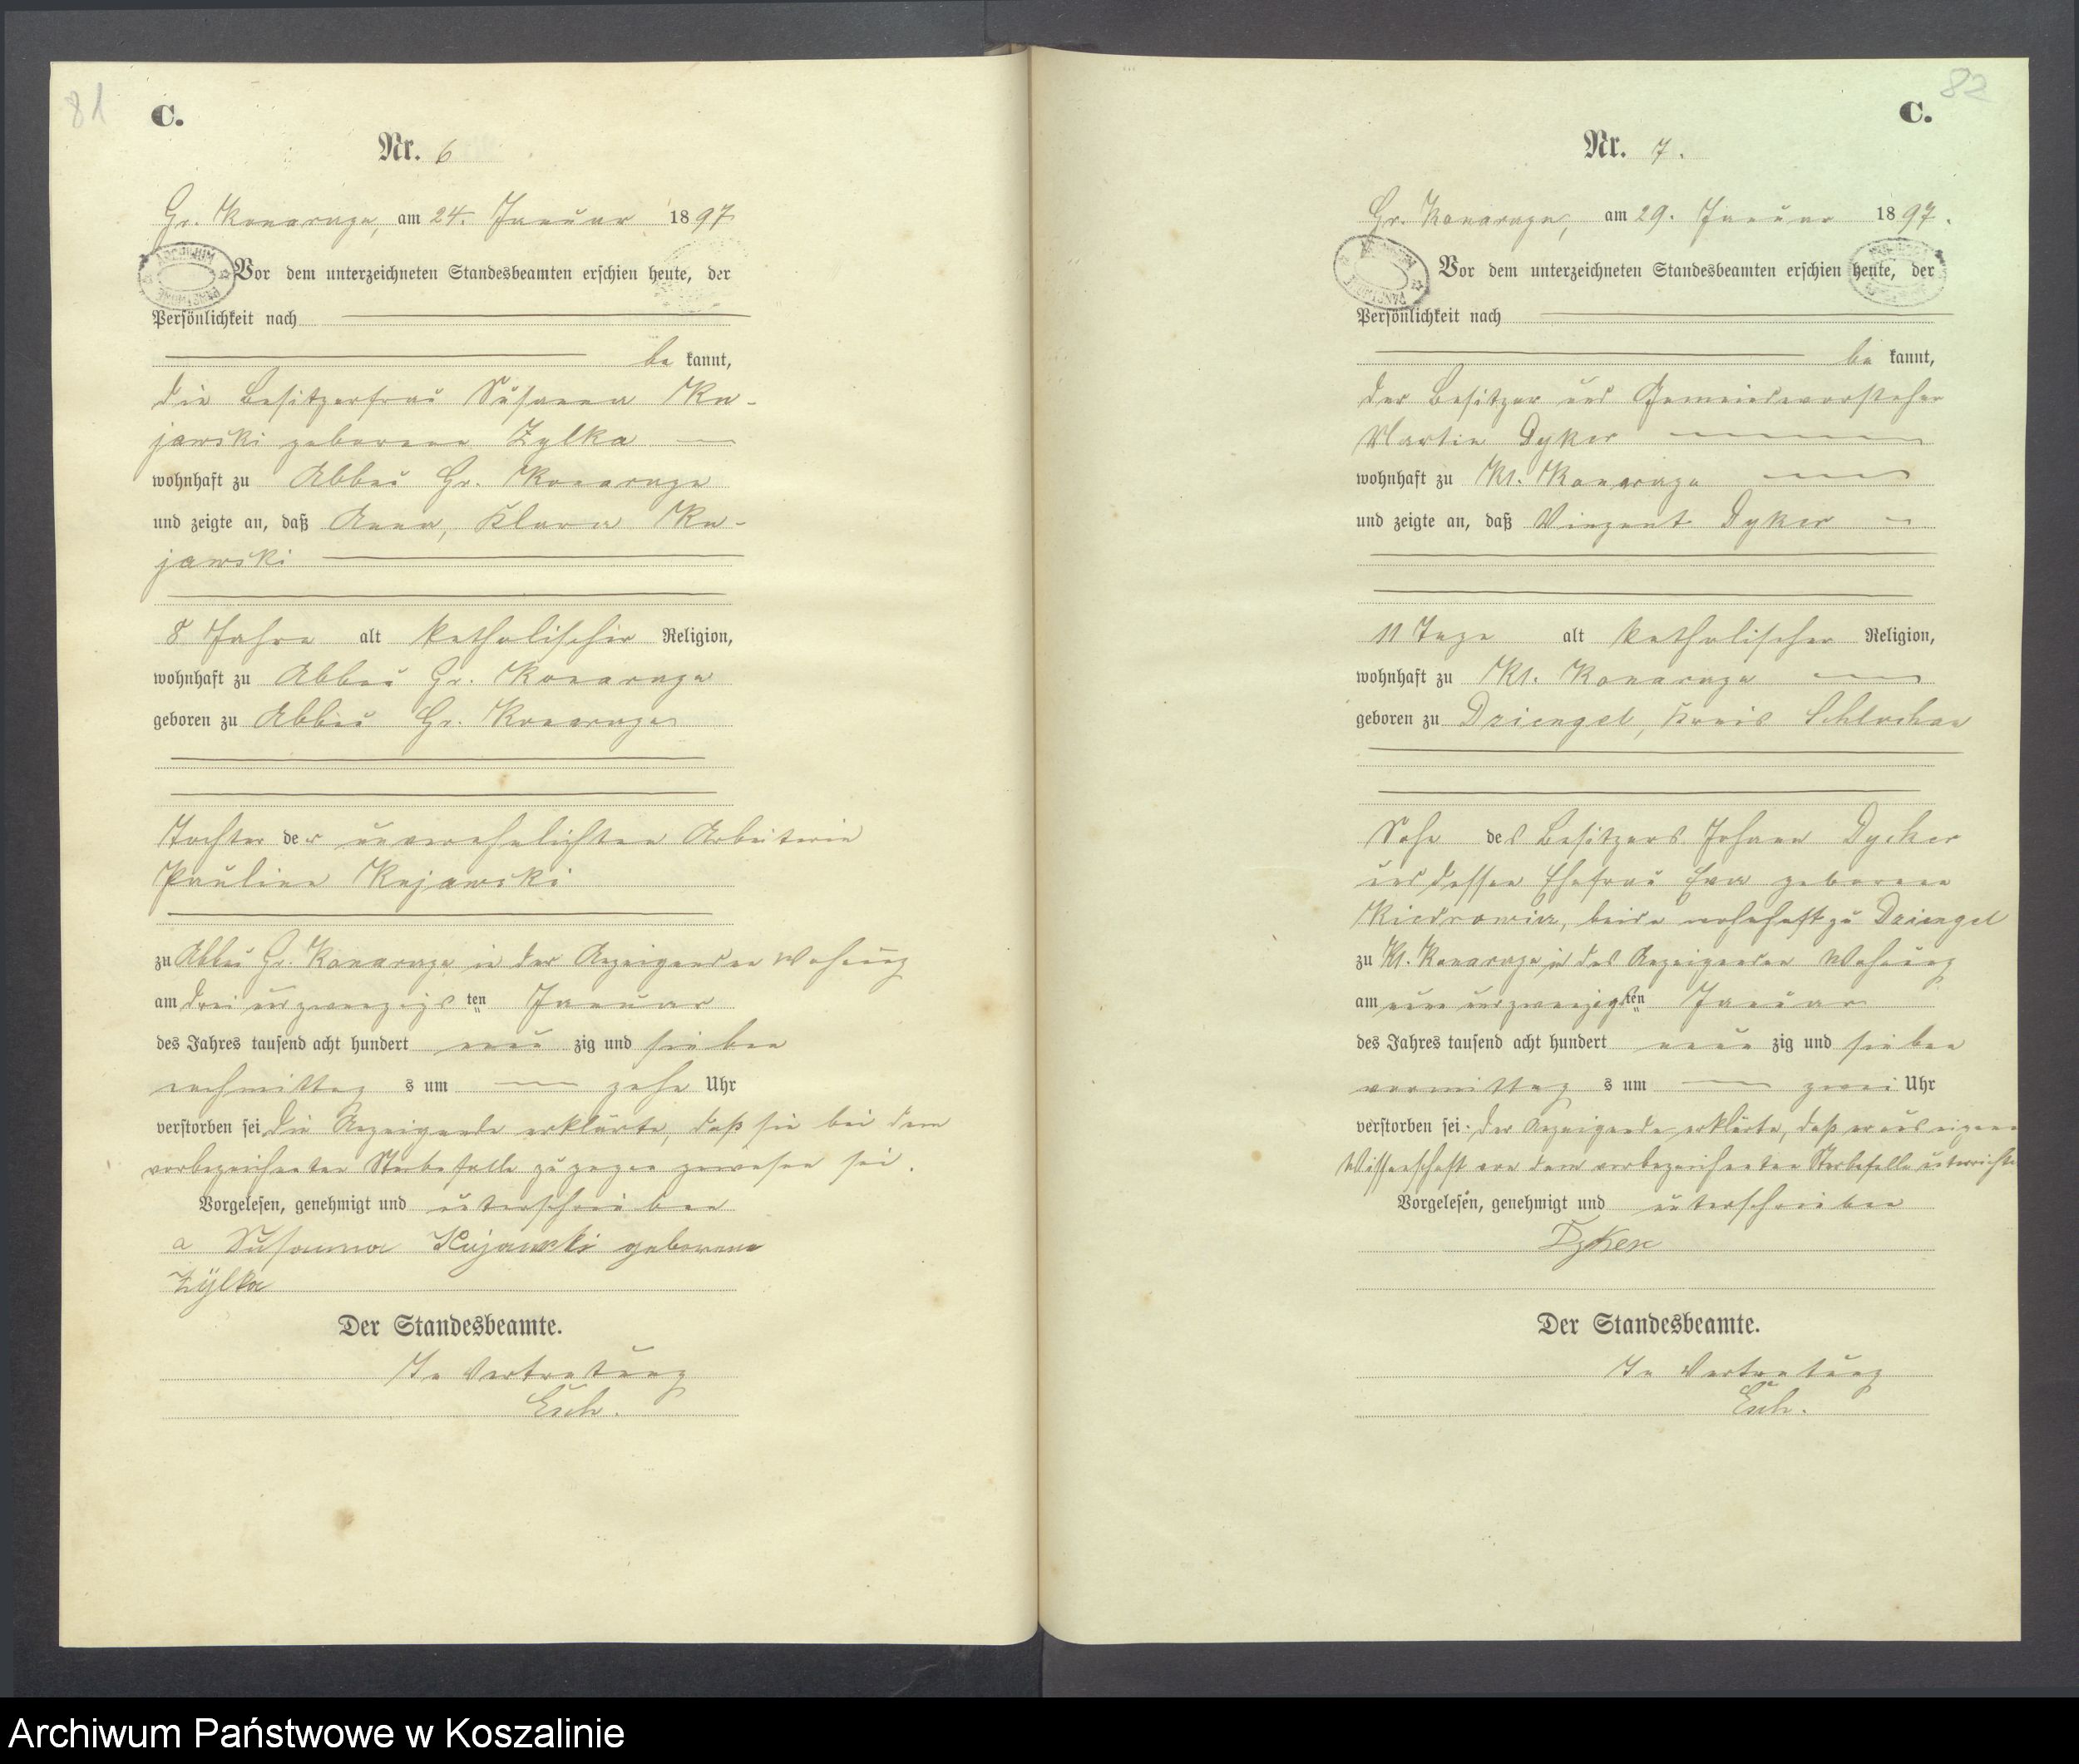 81
C.
Nr. 6
Gr. Konarzyn, am 24. Januar 1897
Vor dem unterzeichneten Standesbeamten erschien heute, der
Persönlichkeit nach
be kannt,
die Besitzerfrau Susanna Ku-
jawski geborene Zylka
wohnhaft zu Abbau Gr. Konarzyn
und zeigte an, daß Anna, Klara Ku-
jawski
8 Jahre alt katholischer Religion,
wohnhaft zu Abbau Gr. Konarzyn
geboren zu Abbau Gr. Konarzyn
Tochter der unverehelichten Arbeiterin
Pauline Kujawski
zu Abbau Gr. Konarzyn in der Anzeigenden Wohnung
am drei und zwanzigs ten Januar
des Jahres tausend acht hundert neun zig und sieben
nachmittag s um zehn Uhr
verstorben sei. Die Anzeigende erklärte, daß sie bei dem
vorbezeichneten Sterbefalle zugegen gewesen sei.
Vorgelesen, genehmigt und unterschrieben
Susanna Kujawski geborene
Zÿlka
Der Standesbeamte.
In Vertretung
82
C.
Nr. 7.
Gr. Konarzyn, am 29. Januar 1897.
Vor dem unterzeichneten Standesbeamten erschien heute, der
Persönlichkeit nach
be kannt,
der Besitzer und Gemeindevorsteher
Martin Dyker
wohnhaft zu Kl. Konarzyn
und zeigte an, daß Vinzent Dyker
11 Tage alt katholischer Religion,
wohnhaft zu Kl. Konarzyn
geboren zu Dziengel, Kreis Schlochau
Sohn des Besitzers Johann Dyker
und dessen Ehefrau Eva geborene
beide wohnhaft zu Dziengel
zu Kl. Konarzyn in des Anzeigenden Wohnung
am neun und zwanzigsten Januar
des Jahres tausend acht hundert neun zig und sieben
vormittag s um zwei Uhr
verstorben sei. Der Anzeigende erklärte, daß er aus eigener
Wissenschaft von dem vorbezeichneten Sterbefalle unterrichtet
Vorgelesen, genehmigt und unterschrieben
Dyker
Der Standesbeamte.
In Vertretung
Archiwum Państwowe w Koszalinie